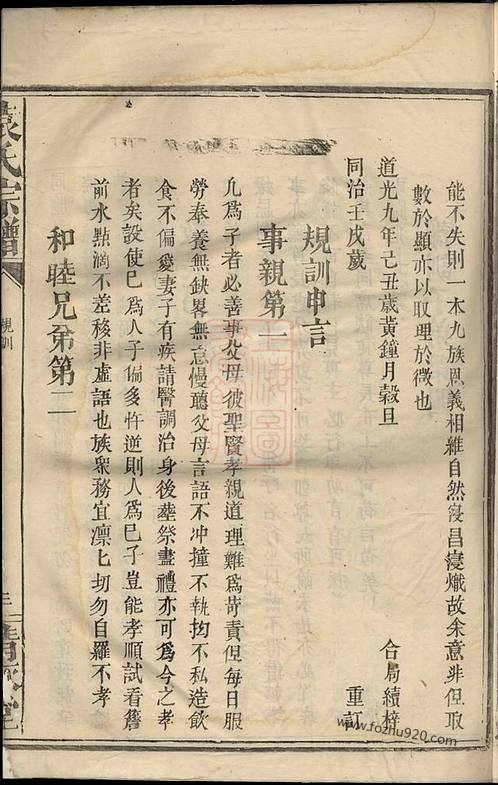 能不失則一本九族恩義相維自然寖昌寖熾故余意非但取
數於顯亦以取理於微也
道光九年己丑歲黃鐘月穀旦 合局續梓
同治壬戌歲 重訂
規訓申言
事親第一
凢爲子者必善事父母彼聖賢孝親道理難爲苛責但每日服
勞奉養無缺畧無怠慢聽父母言語不冲撞不執拗不私造飲
食不偏愛妻子有疾請醫調治身後塟祭盡禮亦可爲今之孝
者矣設使已爲人子偏多忤逆則人爲巳子豈能孝順試看簷
前水點滴不差移非虛語也族衆務宜凛匕切勿自羅不孝
和睦兄弟第二
袁氏宗譜
規訓
www.fozhu920.com